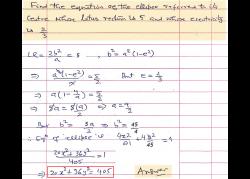 Find the equation of the ellipse referred to its
centre whose latus rectum is 5 and whose eccentricity
is 2/3
LR = 2b²/a = 5 , b² = a²(1-e²)
⇒ a²(1-e²)/a = 5/2 But e = 2/3
⇒ a(1-4/9) = 5/2
⇒ ⇒ a = 9/2
But b² = 5a/2 ⇒ b² = 45/4
∴ Eqⁿ of ellipse is 4x²/81 + 4y²/45 = 1
⇒ 20x² + 36y²/405 = 1
⇒ 20x² + 36y² = 405 Answer